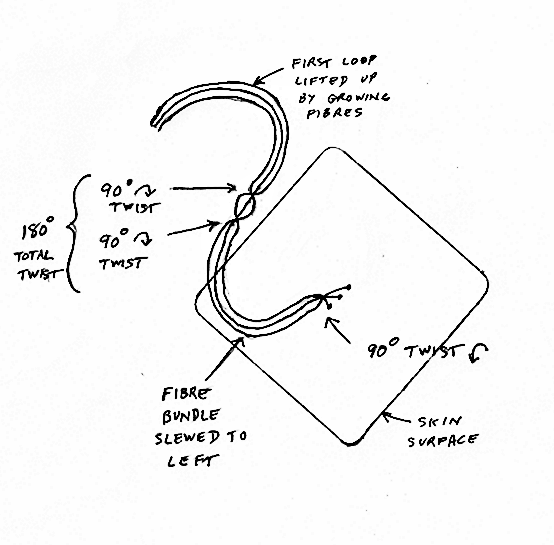 FIRST LOOP
LIFTED UP
BY GROWING
FIBRES
90°
TWIST
180°
TOTAL
TWIST
90°
TWIST
90° TWIST
FIBRE
BUNDLE
SLEWED TO
LEFT
SKIN
SURFACE